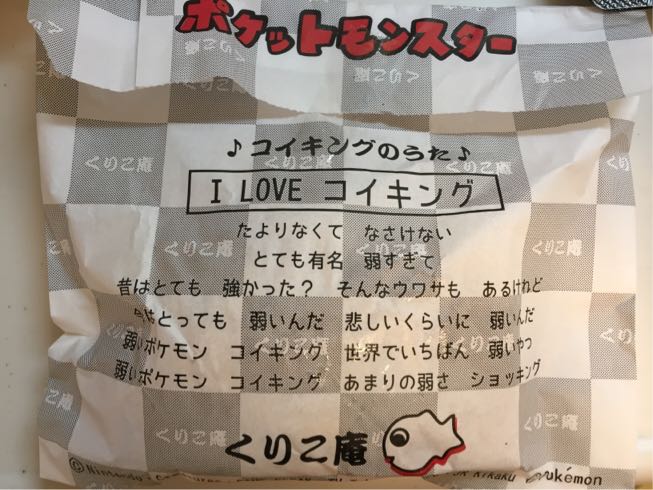 ポケットモンスター
くりこ庵 くりこ庵 くりこ庵
♪コイキングのうた♪
I LOVE コイキング
たよりなくて なさけない
とても有名 弱すぎて
昔はとても 強かった? そんなウワサも あるけれど
今はとっても 弱いんだ 悲しいくらいに 弱いんだ
弱いポケモン コイキング 世界でいちばん 弱いやつ
弱いポケモン コイキング あまりの弱さ ショッキング
くりこ庵 くりこ庵
くりこ庵
©Nintendo